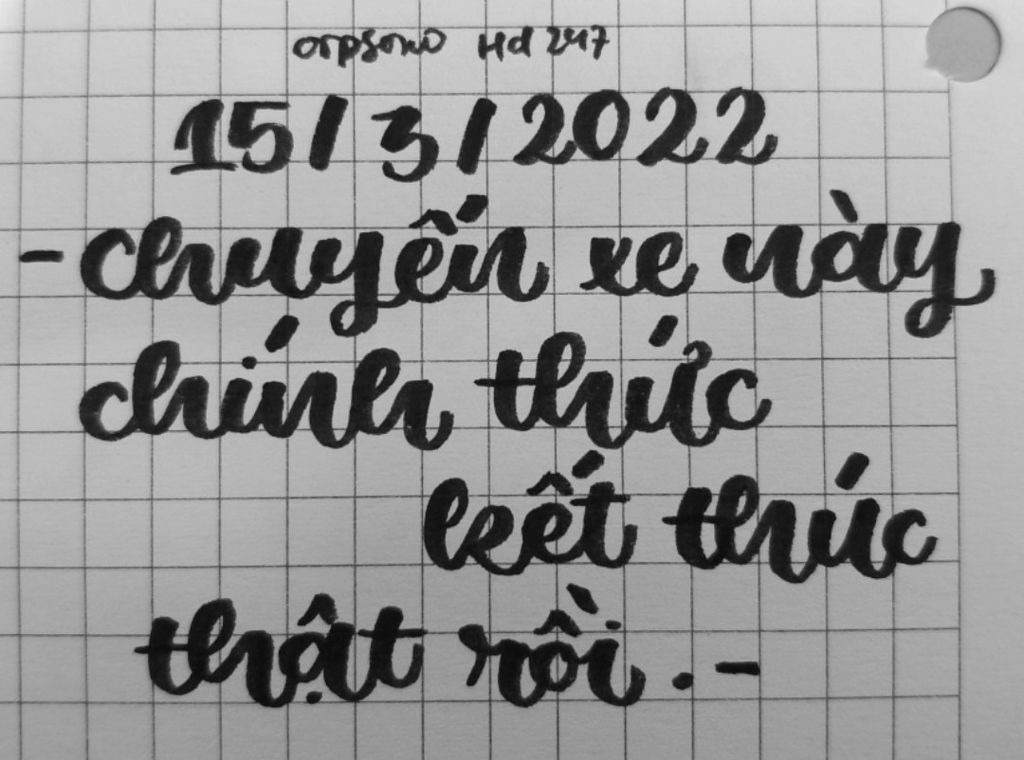 Hd 247
15/3/2022
- chuyến xe này
chính thức
kết thúc
thật rồi . -